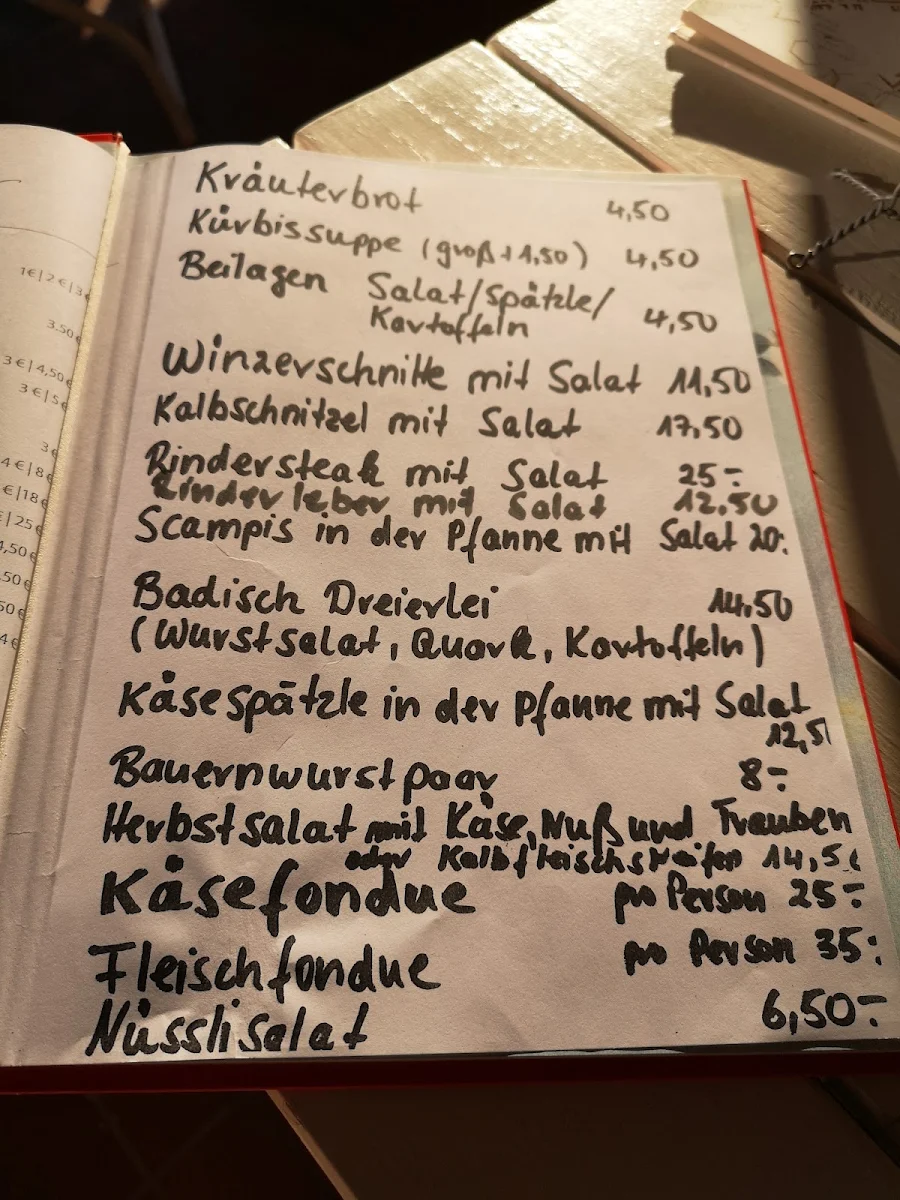 Kräuterbrot 4,50
Kürbissuppe (groß +1,50) 4,50
Beilagen Salat/Spätzle/
Kartoffeln 4,50
Winzerschnitte mit Salat 11,50
Kalbschnitzel mit Salat 17,50
Rindersteak mit Salat 25.-
Rinderleber mit Salat 12,50
Scampis in der Pfanne mit Salat 20.
Badisch Dreierlei 14,50
(Wurstsalat, Quark, Kartoffeln)
Käsespätzle in der Pfanne mit Salat
12,5
Bauernwurstpaar 8.-
Herbstsalat mit Käse, Nuß und Trauben
oder Kalbfleischstreifen 14,5
Käsefondue pro Person 25.-
Fleischfondue pro Person 35.-
Nüsslisalat 6,50.-
1€|2€|3€
3.50€
3€|4,50€
3€|5€
3€
4€|8€
€|18€
€|25€
4,50€
50€
50€
4€